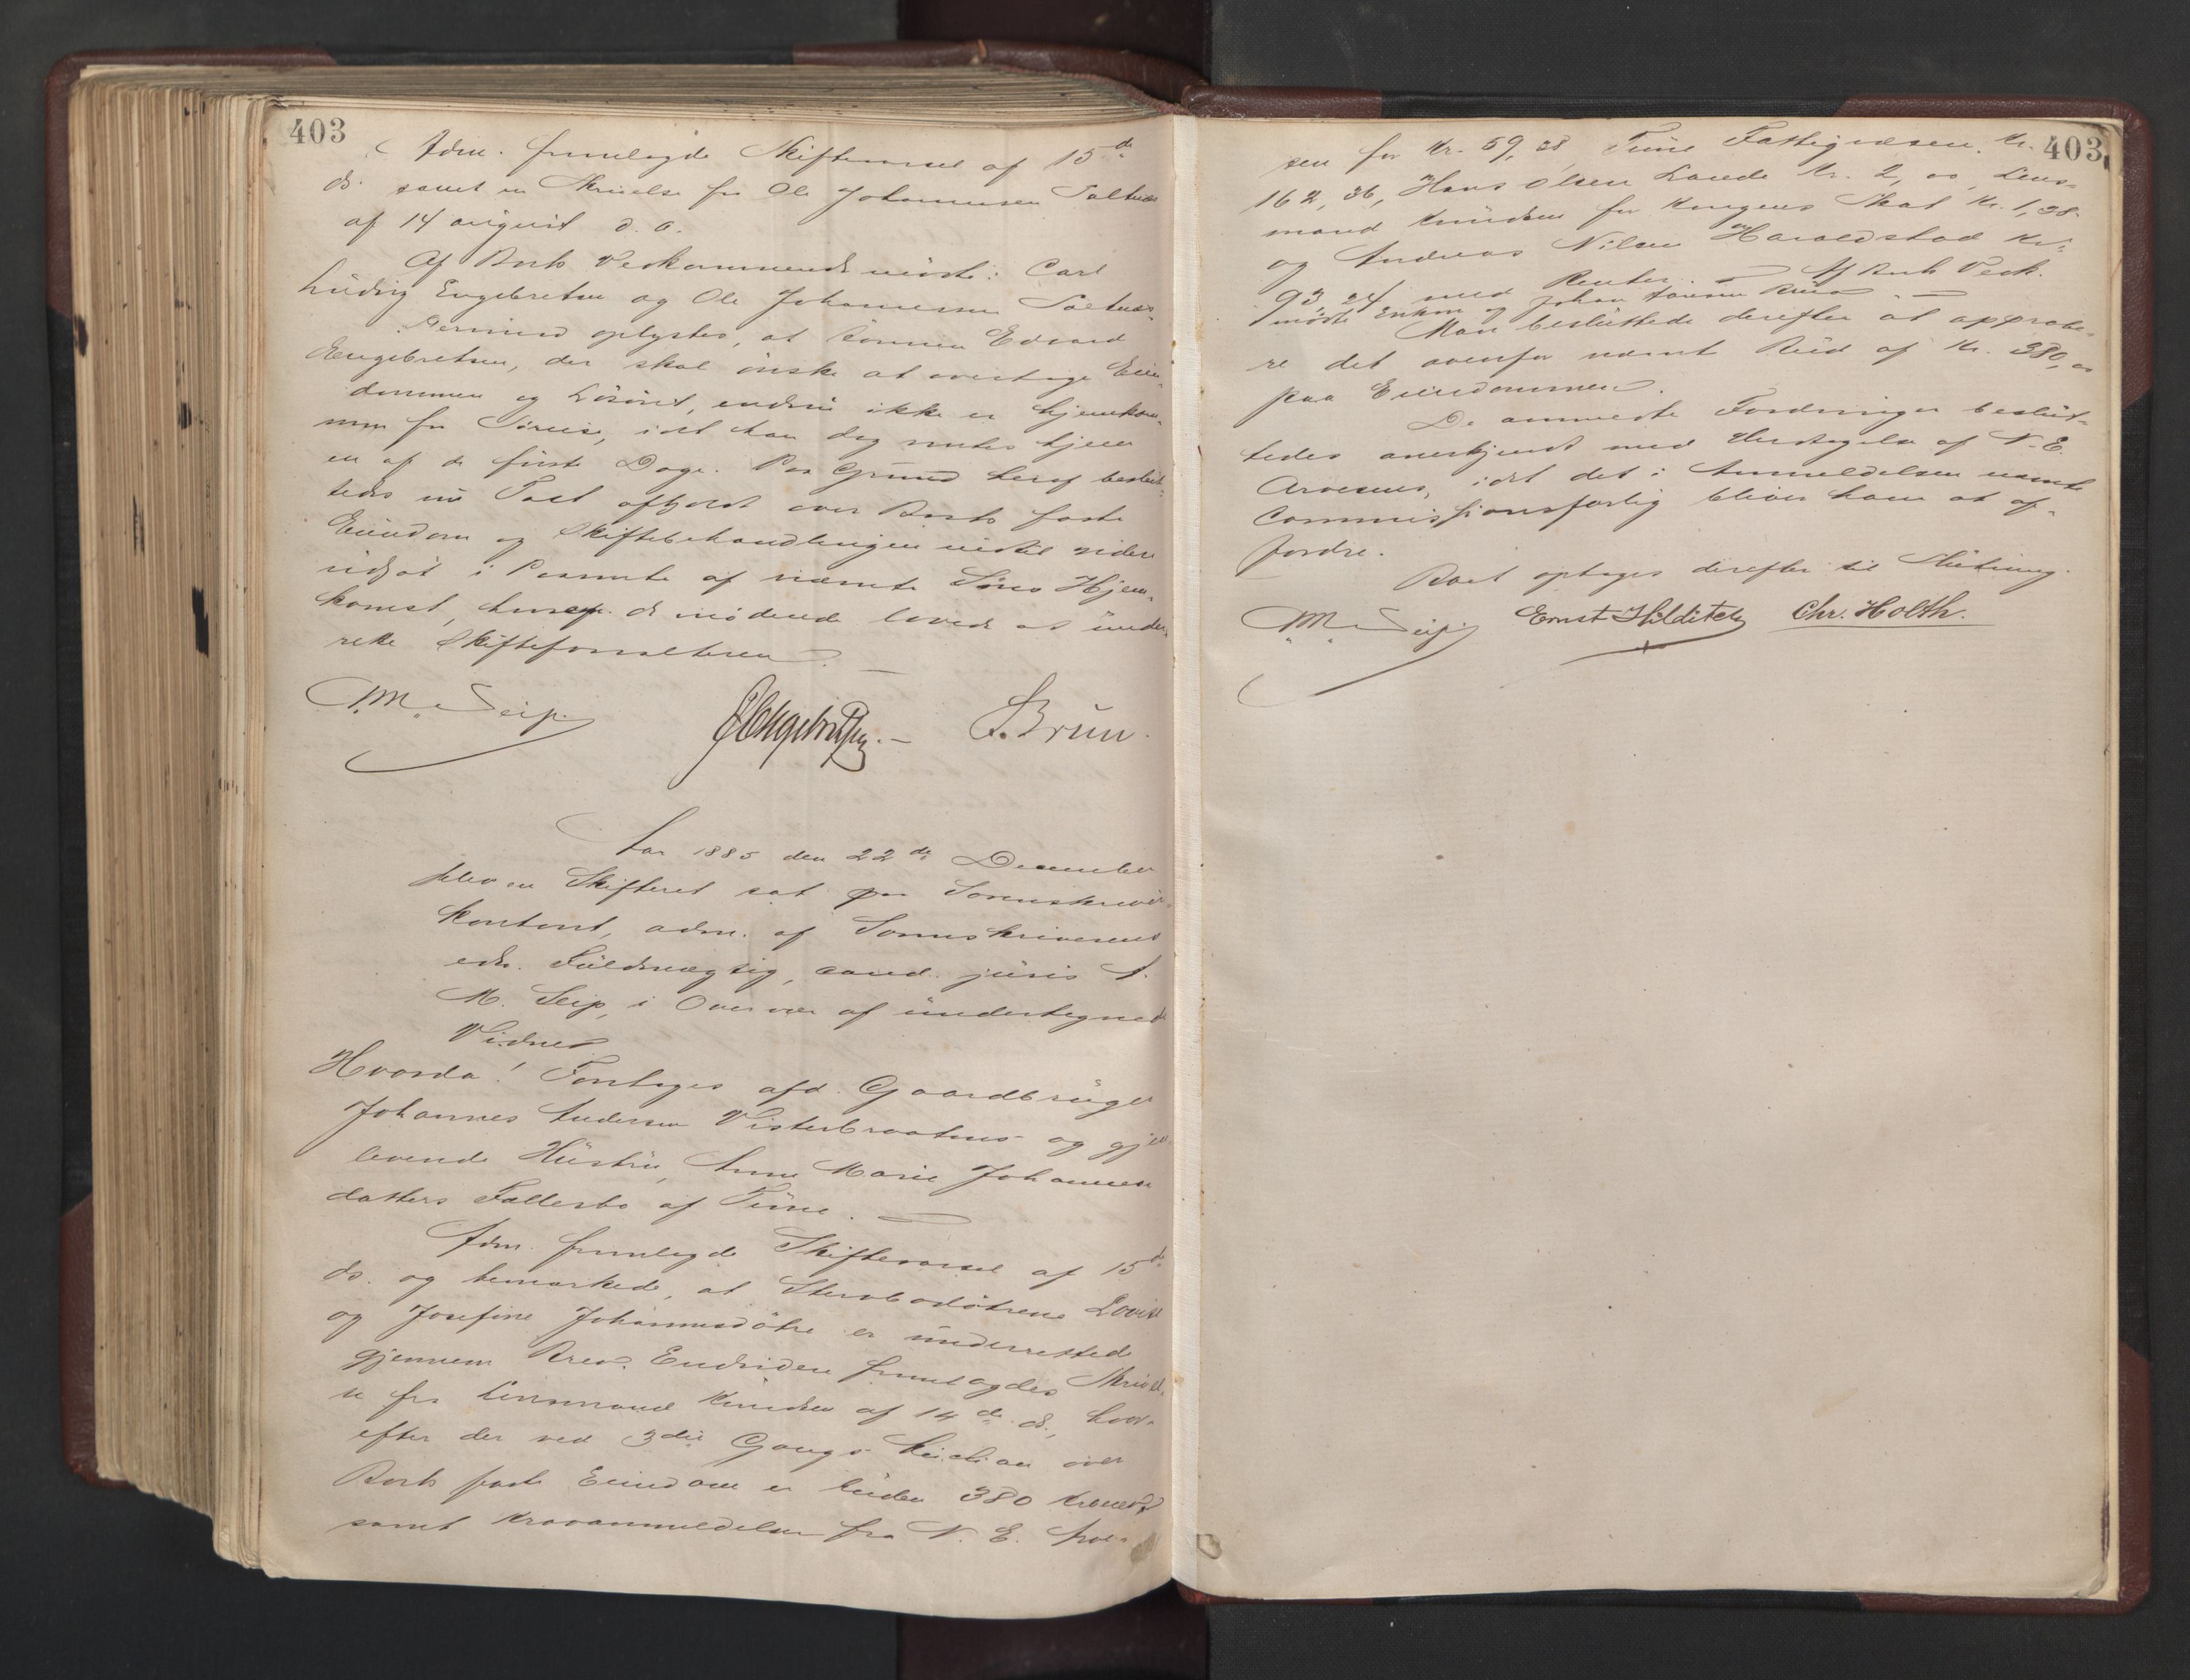 403
Adm. fremlagde Skiftevarsel af 15de
ds. samt en Skrivelse fra Ole Johannesen Saltnæs
af 14 august d. a.
Af Boets Vedkommende mødte: Carl
Ludvig Engebretsen og Ole Johannesen Saltnæs.
Dermed oplystes, at Sønnen Edvard
Engebretsen, der skal ønske at overtage Eien-
dommen og Løsøret, endnu ikke er hjemkom-
men fra Søreise, idet han dog ventes hjem
en af de første Dage. Paa Grund heraf beslut-
tedes ny Taxt afholdt over Boets faste
Eiendom og Skiftebehandlingen indtil videre
udsat i Paavente af nævnte Søns Hjem-
komst, hvorom de mødende lovede at under-
rette Skifteforvalteren. —
A. M. Seip. Engebretsen. — S. Brun.
Aar 1885 den 22de December
blev en Skifteret sat paa Sorenskriver-
kontoret, adm. af Sorenskriverens
eds. Fuldmægtig, cand. juris A.
M. Seip, i Overvær af undertegnede
Vidner
Hvorda! Foretoges afd. Gaardbruger
Johannes Andersen Visterbraatens og gjen-
levende Hustru, Anne Marie Johannes-
datters Fællesbo af Tune. —
Adm. fremlagde Skiftevarsel af 15de
ds. og bemærkede, at Stervbodøtrene Lovise
og Josefine Johannesdøtre er underrettede
gjennem Brev. Endvidere fremlagdes Skrivel-
se fra Lensmand Knudsen af 14de ds., hvor-
efter der ved 3die Gangs Auction over
Boets faste Eiendom er buden 380 Kroner,
samt Kravanmeldelser fra N. E. Arve-
403
sen for Kr. 59,38, Tune Fattigvæsen Kr.
162,36, Hans Olsen Lande Kr. 2,00, Lens-
mand Knudsen for Kongens Skat Kr. 1,38
og Andreas Nilsen Haraldstad Kr.
93,24 med Renter. — Af Boets Vedk.
mødte Enken og Johan Hansen —
Man besluttede derefter at approbe-
re det ovenfor nævnt Bud af Kr. 380,00
paa Eiendommen.
De anmeldte Fordringer beslut-
tedes anerkjendt med Undtagelse af N. E.
Arvesens, idet det i Anmeldelsen nævnte
Commissionsforlig bliver ham at af-
fordre.
Boet optoges derefter til Slutning.
A. M. Seip. Ernst Hilditch Chr. Holth.